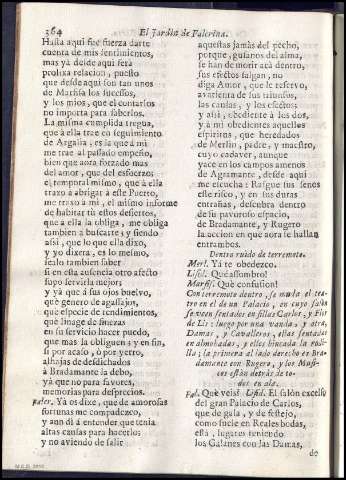 364
El Jardin de Falerina.
Hasta aqui fue fuerza darte
cuenta de mis sentimientos,
mas yà desde aqui serà
prolixa relacion, puesto
que desde aqui son tan unos
de Marfisa los sucessos,
y los mios, que el contarlos
no importa para saberlos.
La misma cumplida tregua,
que à ella trae en seguimiento
de Argalia, es la que à mi
me trae al passado empeño,
bien que aora forzado mas
del amor, que del esfuerzo:
el temporal mismo, que à ella
traxo à abrigar à este Puerto,
me traxo à mi, el mismo informe
de habitar tù estos desiertos,
que à ella la obliga, me obliga
tambien à buscarte y siendo
assi, que lo que ella dixo,
y yo dixera, es lo mesmo,
sealo tambien saber
si en esta ausencia otro afecto
supo servirla mejor;
y yà que à sus ojos buelvo,
què genero de agassajos,
què especie de rendimientos,
què linage de finezas
en su servicio hacer puedo,
que mas la obliguen: y en fin,
si por acaso, ò por yerro,
alhajas de desdichados
à Bradamante la debo,
yà que no para favores,
memorias para desprecios.
Faler. Yà os dixe, que de amorosas
fortunas me compadezco,
y aun dì à entender que tenia
altas causas para hacerlo;
y no aviendo de salir
aquestas jamàs del pecho,
porque, gusanos del alma,
se han de morir acà dentro,
sus efectos salgan, no
diga Amor, que le reservo,
avarienta de sus triunfos,
las causas, y los efectos;
y assi, obediente à los dos,
y à mi obedientes aquellos
espiritus, que heredados
de Merlin, padre, y maestro,
cuyo cadaver, aunque
yace en los campos amenos
de Agramante, desde aqui
me escucha: Rasgue sus senos
este risco, y en sus duras
entrañas, descubra dentro
de su pavoroso espacio,
de Bradamante, y Rugero
la accion en que aora se hallan
entrambos.
Dentro ruido de terremoto.
Merl. Yà te obedezco.
Lisid. Què assombro!
Marfis. Què confusion!
Con terremoto dentro, se muda el tea-
tro en el de un Palacio, en cuyo salon
se veen sentados en sillas Carlos, y Flor
de Lis: luego por una vanda, y otra
Damas, y Cavalleros, ellas sentadas
en almohadas, y ellos hincada la rodi-
lla; la primera al lado derecho es Bra-
damante con Rugero, y los Musi-
cos estàn detràs de to-
dos en ala.
Fal. Què veis? Lisid. El salòn excelso
del gran Palacio de Carlos,
que de gala, y de festejo,
como sucle en Reales bodas,
està, lugares teniendo
los Galanes con las Damas,
de